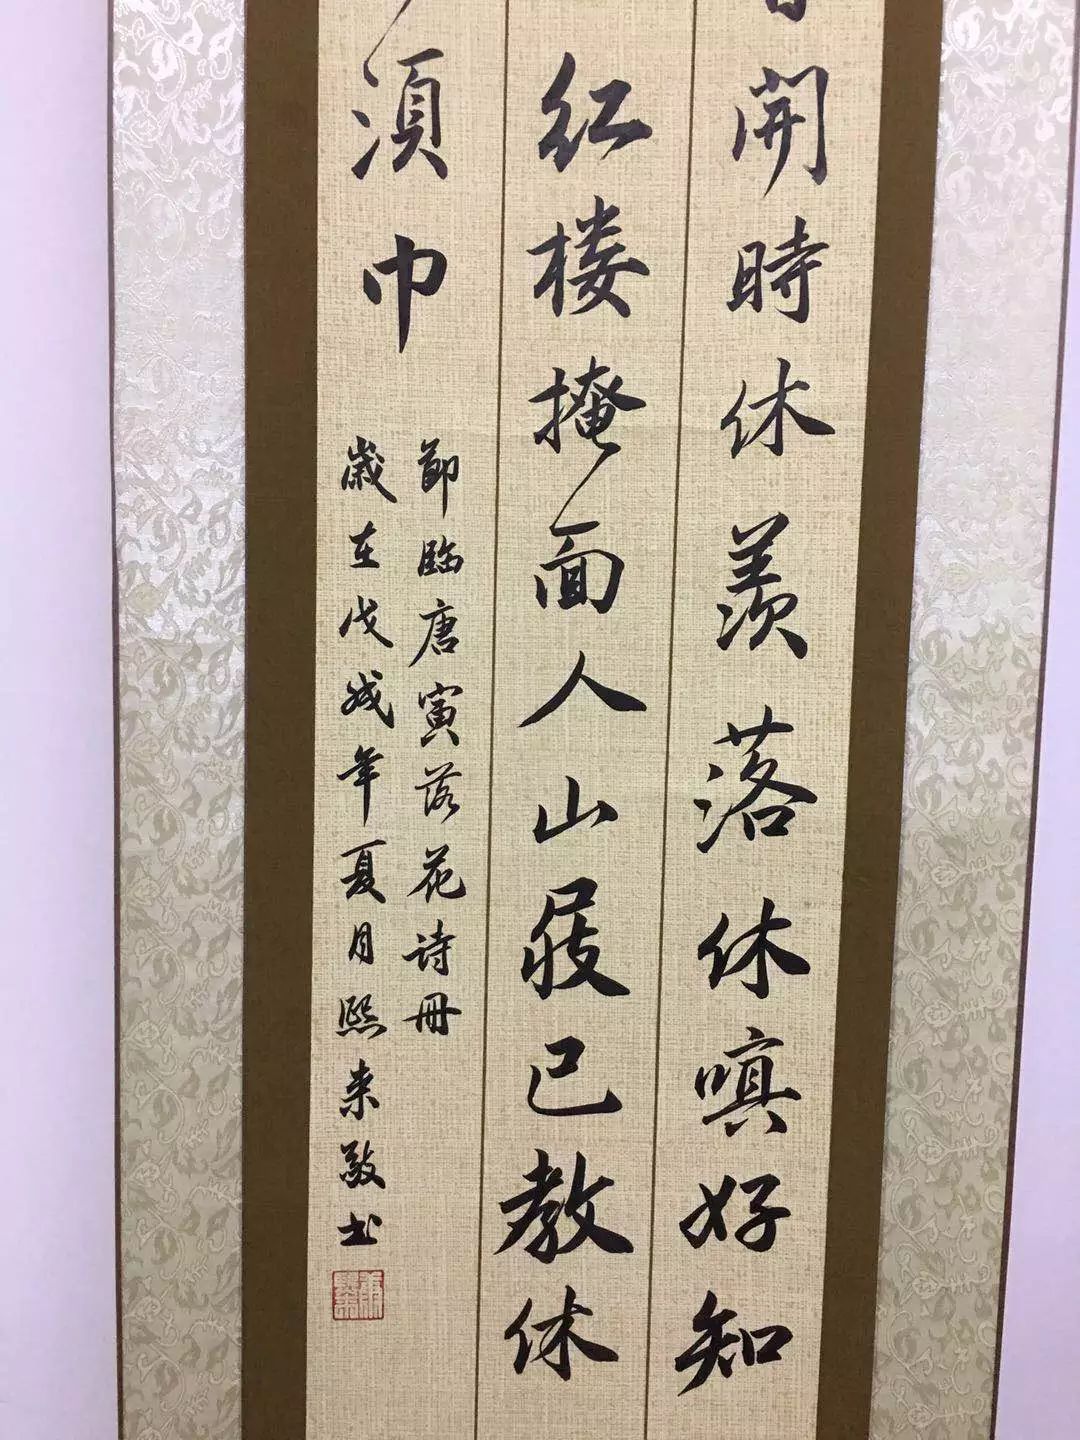 開時休羡落休嗔好知
红楼掩面人山屐已教休
須巾
節臨唐寅落花诗册
歲在戊戌年夏月熙来敬书